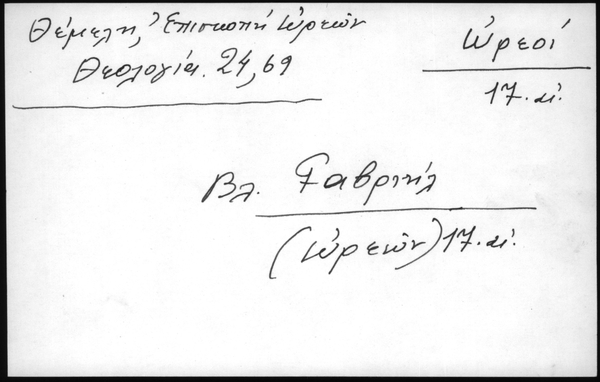 Θέμελη, Ἐπισκοπή Ὠρεών
Θεολογία. 24, 69
Ὠρεοί
17. αἰ.
Βλ. Γαβριήλ
(Ὠρεῶν) 17. αἰ.